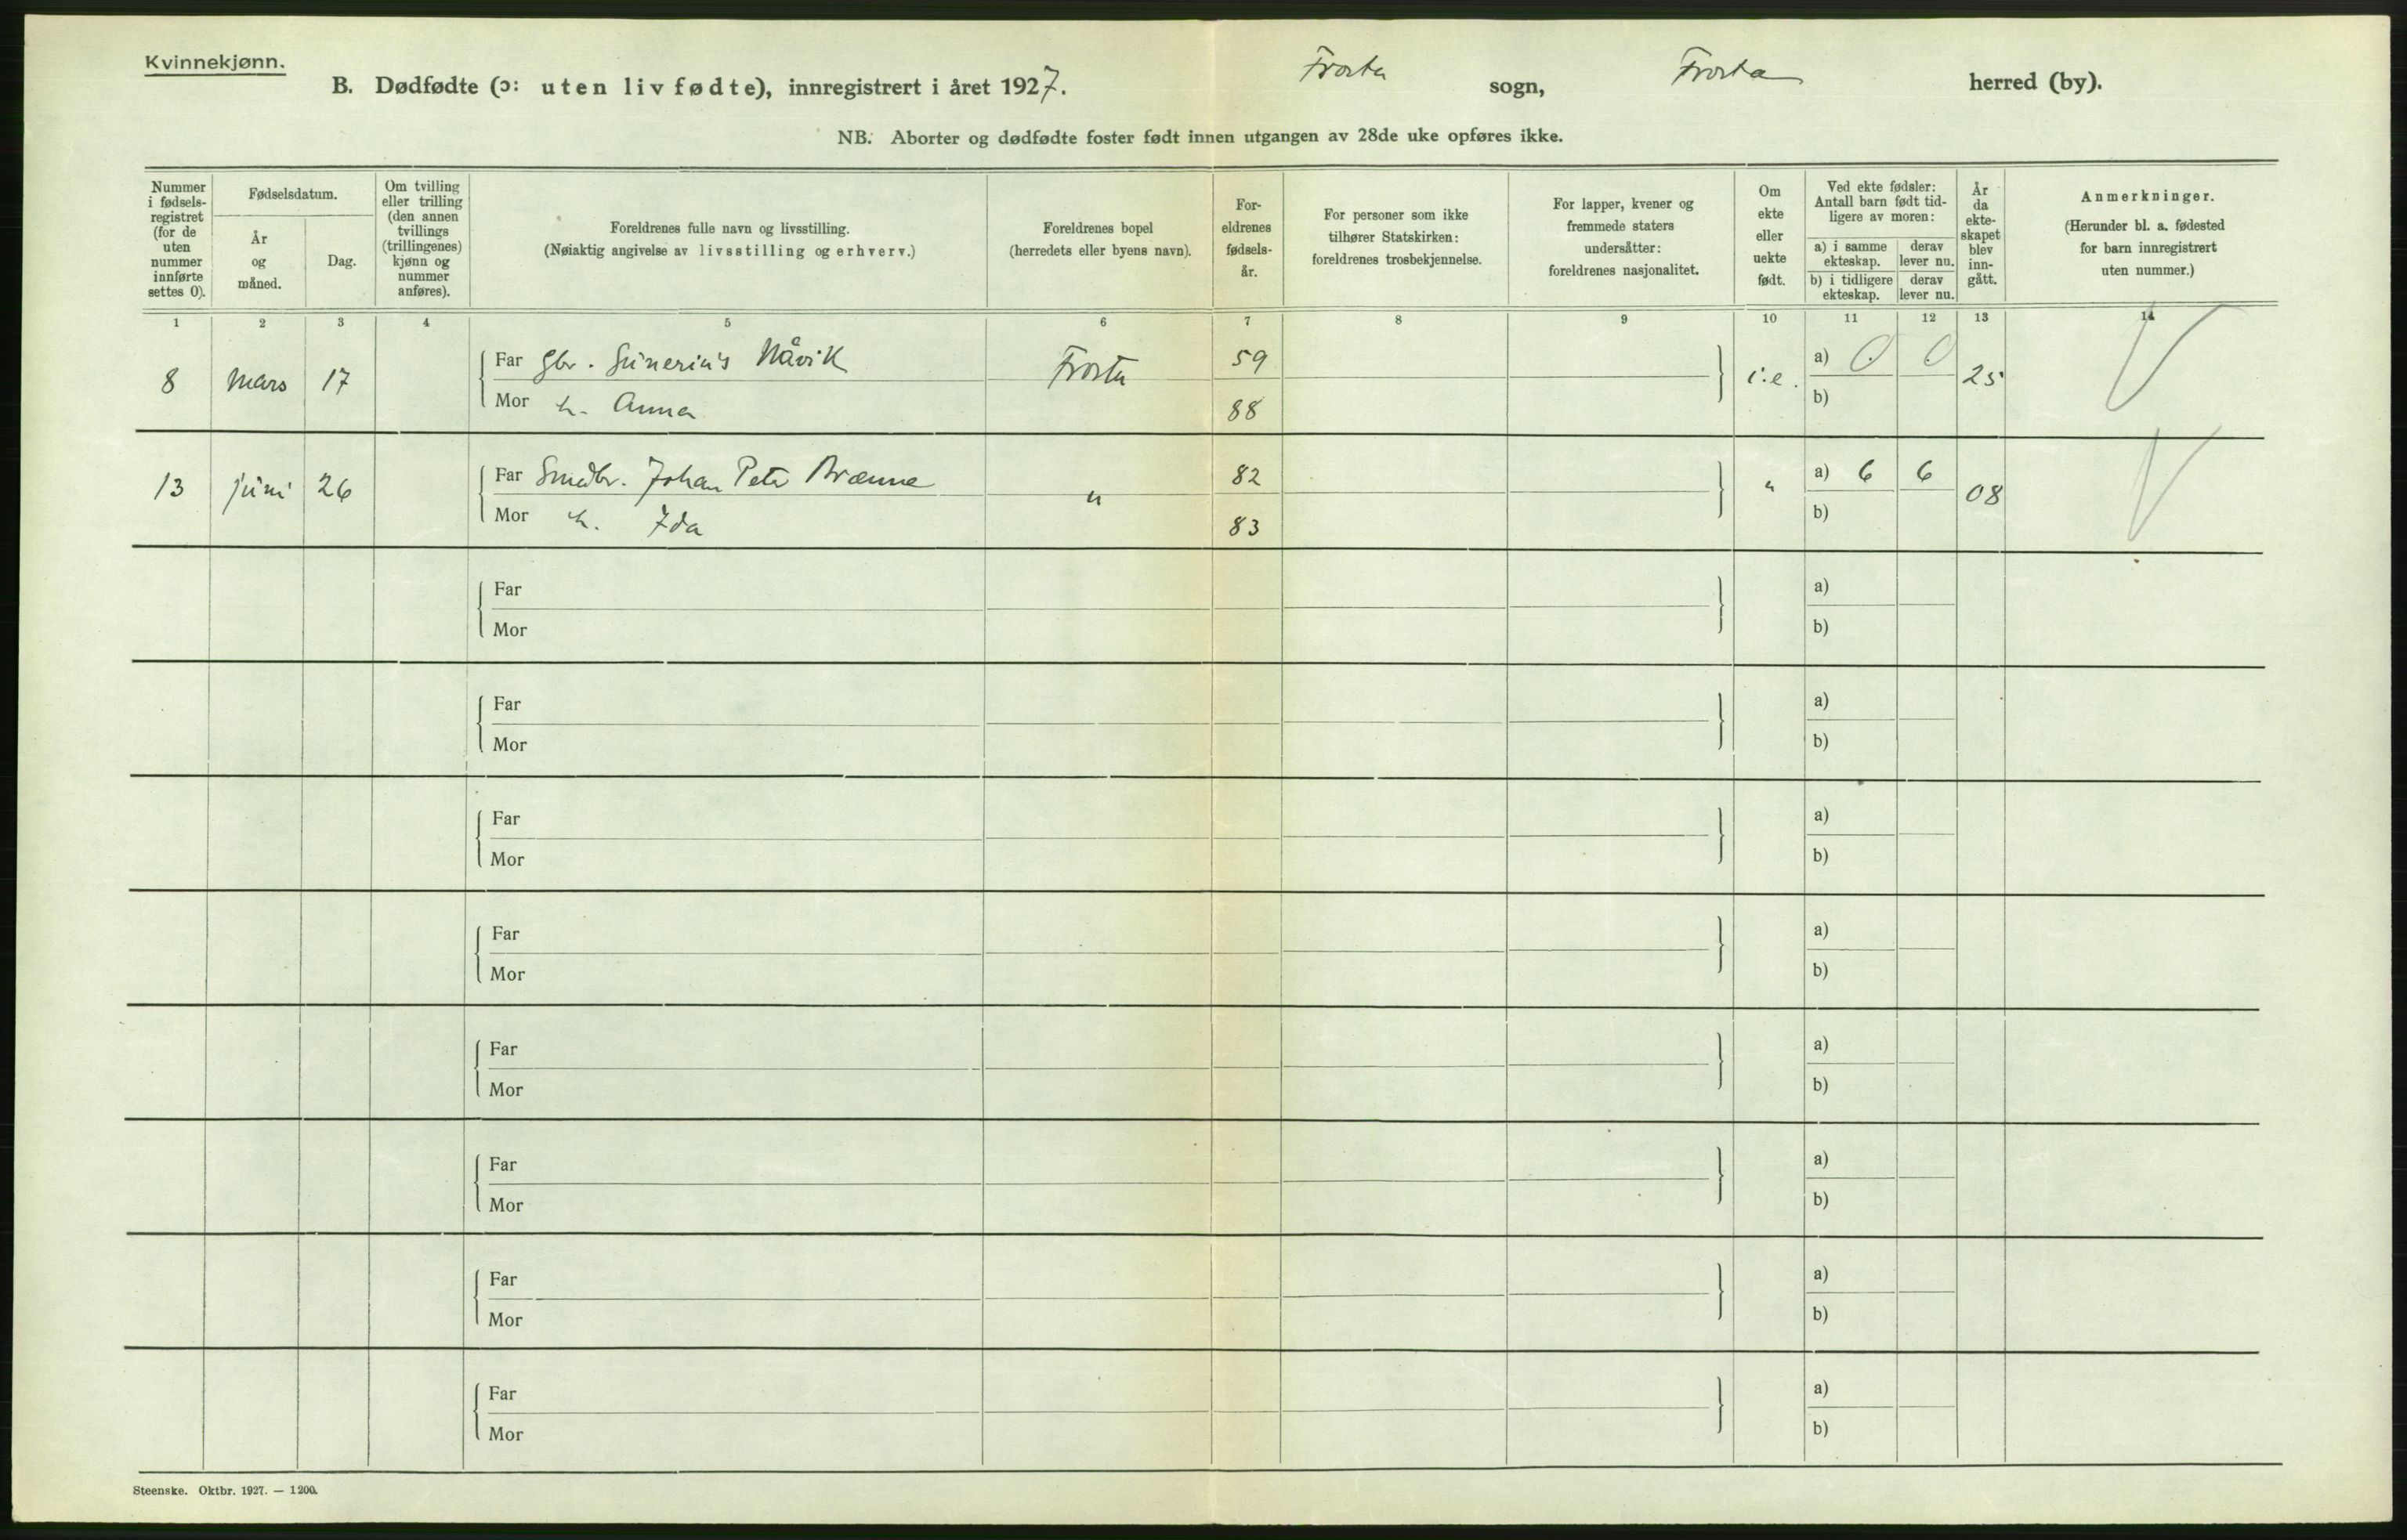 Kvinnekjønn.
B. Dødfødte (ɔ: uten liv fødte), innregistrert i året 1927. Frosta sogn, Frosta herred (by).
NB. Aborter og dødfødte foster født innen utgangen av 28de uke opføres ikke.
Nummer i fødselsregistret (for de uten nummer innførte settes 0).
Fødselsdatum.
År og måned.
Dag.
Om tvilling eller trilling (den annen tvillings (trillingenes) kjønn og nummer anføres).
Foreldrenes fulle navn og livsstilling.
(Nøiaktig angivelse av livsstilling og erhverv.)
Foreldrenes bopel
(herredets eller byens navn).
Foreldrenes fødselsår.
For personer som ikke tilhører Statskirken: foreldrenes trosbekjennelse.
For lapper, kvener og fremmede staters undersåtter: foreldrenes nasjonalitet.
Om ekte eller uekte født.
Ved ekte fødsler: Antall barn født tidligere av moren:
a) i samme ekteskap. derav lever nu.
b) i tidligere ekteskap. derav lever nu.
År da ekteskapet blev inngått.
Anmerkninger.
(Herunder bl. a. fødested for barn innregistrert uten nummer.)
1 2 3 4 5 6 7 8 9 10 11 12 13 14
8 Mars 17 Far Gbr. Gunerius Håvik Frosta 59 i.e. a) 0 0 25
Mor h. Anna 88 b)
13 juni 26 Far Småbr. Johan Peter Brænne " 82 " a) 6 6 08
Mor h. Ida 83 b)
Far a)
Mor b)
Far a)
Mor b)
Far a)
Mor b)
Far a)
Mor b)
Far a)
Mor b)
Far a)
Mor b)
Far a)
Mor b)
Far a)
Mor b)
Steenske. Oktbr. 1927. — 1200.